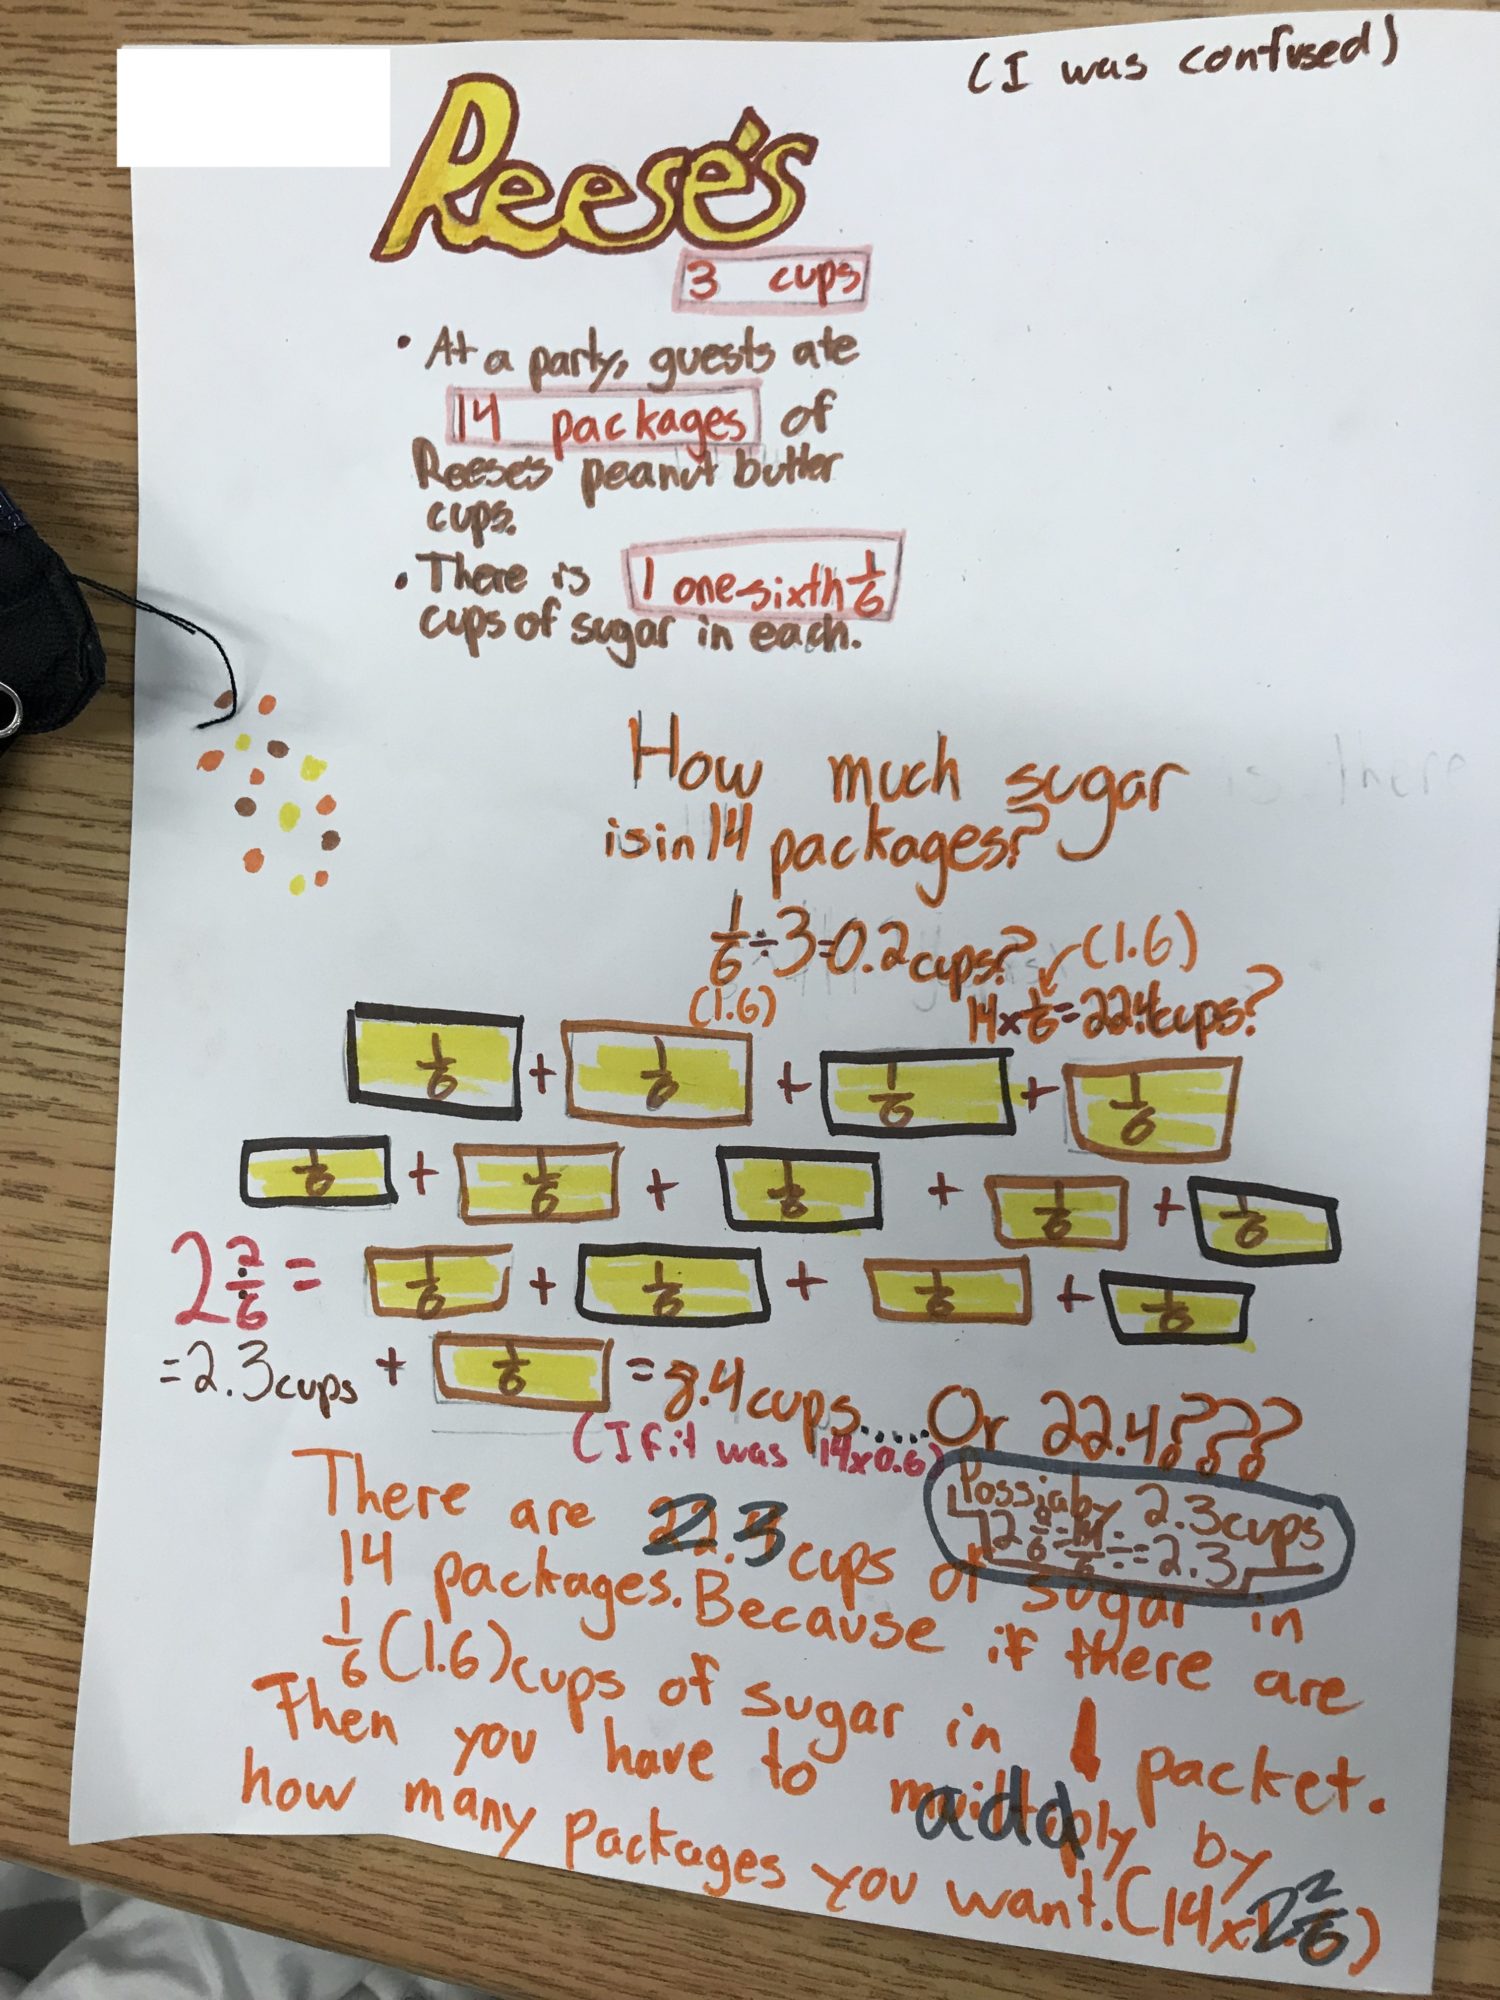 (I was confused)
Reese's
3 cups
• At a party, guests ate
14 packages of
Reese's peanut butter
cups.
• There is 1 one-sixth 1/6
cups of sugar in each.
How much sugar
is in 14 packages?
1/6 ÷ 3 = 0.2 cups?
(1.6)
(1.6)
14 x 1/6 = 22.4 cups?
1/6 + 1/6 + 1/6 + 1/6
1/6 + 1/6 + 1/6 + 1/6 + 1/6
2 2/6 = 1/6 + 1/6 + 1/6 + 1/6
= 2.3 cups + 1/6 = 8.4 cups..... Or 22.4???
(If it was 14x0.6)
Possiaby 2.3 cups
2 2/6 = 14/6 ÷ = 2.3
There are 2.3 cups of sugar in
14 packages. Because if there are
1/6 (1.6) cups of sugar in 1 packet.
Then you have to add by
how many packages you want. (14x2 2/6)